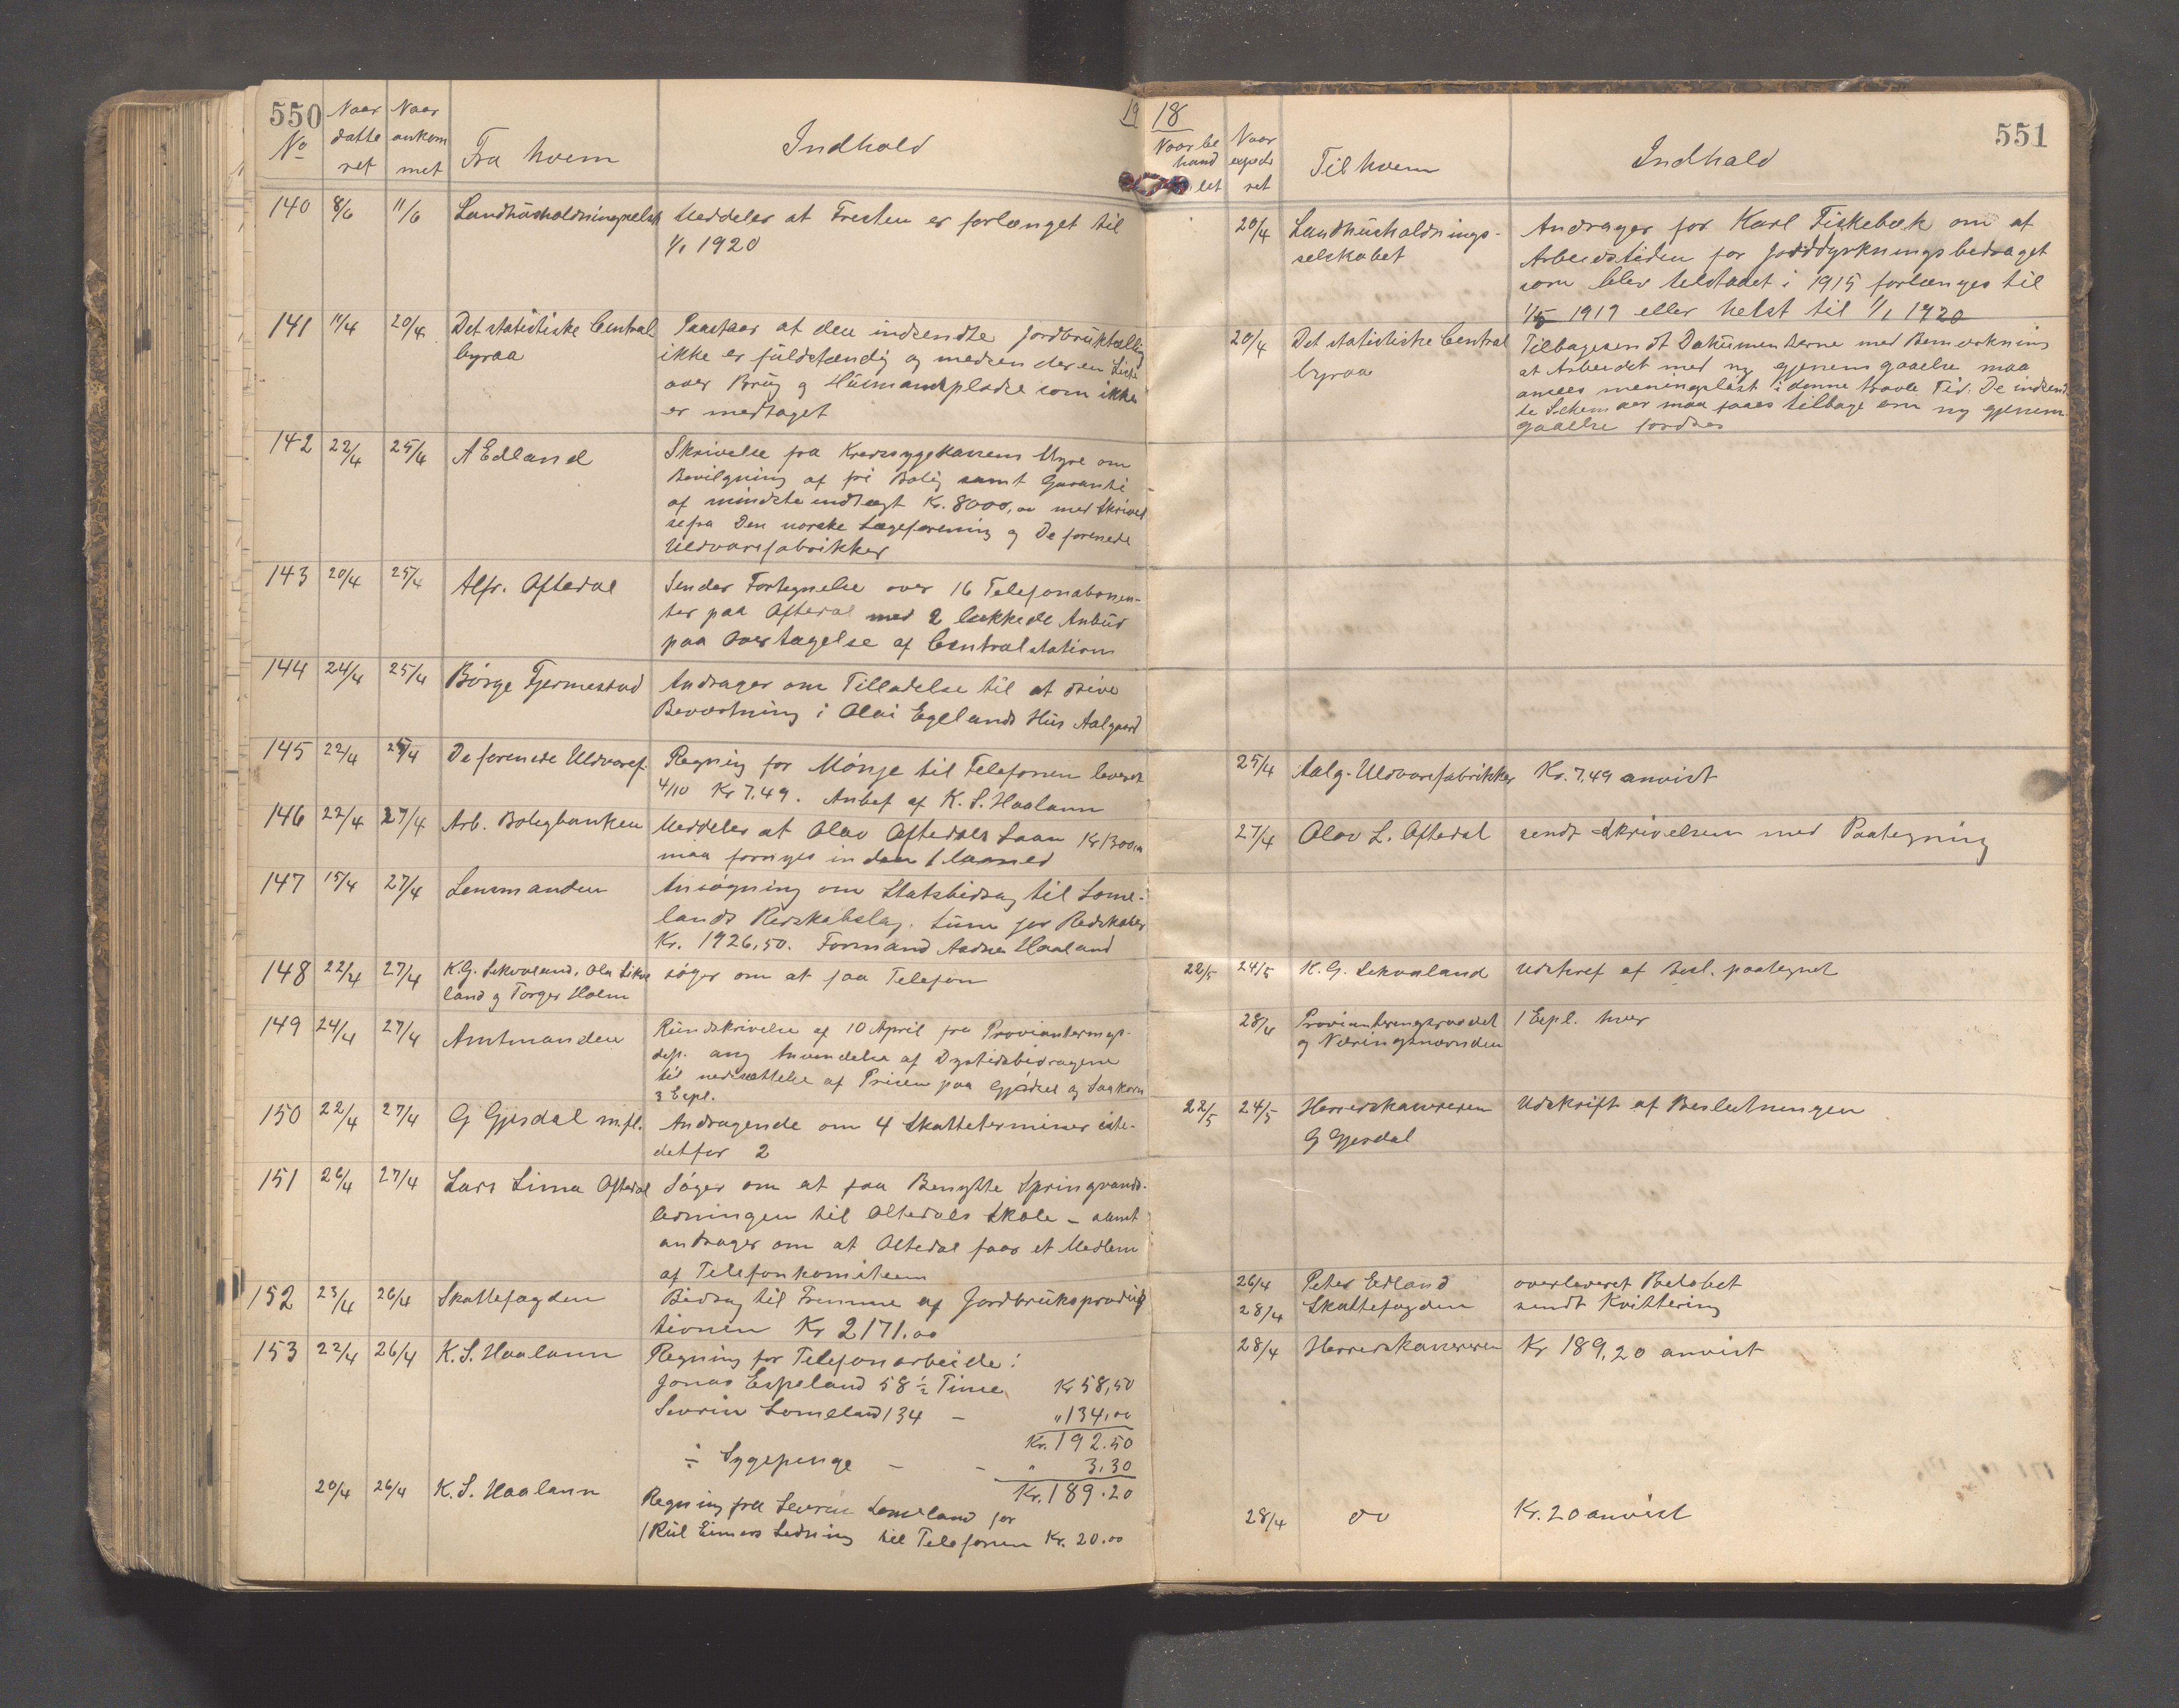 550
No
Naar datteret
Naar ankommet
Fra hvem
Indhold
19
140 8/6 11/6 Landhusholdningselsk Meddeler at Fresten er forlænget til
1/1 1920
141 11/4 20/4 Det statistiske Central Paastaar at den indsendte Jordbruktælling
byraa ikke er fuldstændig og medsender en Liste
over Brug og Husmandspladse som ikke
er medtaget
142 22/4 25/4 A Edland Skrivelse fra Kredssygekassens Styre om
Bevilgning af fri Bolig samt Garanti
af mindsteindtægt Kr. 8000,00 med Skrivel
se fra Den norske Lægeforening og De forenede
Uldvarefabrikker
143 20/4 25/4 Alfr. Oftedal Sender Fortegnelse over 16 Telefonabonen-
ter paa Oftedal med 2 lukkede Anbud
paa Overtagelse af Centralstation
144 24/4 25/4 Börge Fjermestad Andrager om Tilladelse til at drive
Beværtning i Olai Egelands Hus Aalgaard
145 22/4 25/4 De forenede Uldvaref. Regning for Mönje til Telefonen leveret
4/10 Kr 7.49. Anbef af K. S. Haaland
146 22/4 27/4 Arb. Boligbanken Meddeler at Olav Oftedals Laan Kr 1300,00
maa fornyes inden 1 Maaned
147 15/4 27/4 Lensmanden Ansøgning om Statsbidrag til Lome-
lands Redskabslag. Sum for Redskaber
Kr. 1926,50. Formand Aadne Haaland
148 22/4 27/4 K.G. Sekvaland, Ola Sikva söger om at faa Telefon
land og Torger Holm
149 24/4 27/4 Amtmanden Rundskrivelse af 10 April fra Provianterings-
dep. ang Anvendelse af Dyrtidsbidragene
til nedsættelse af Prisen paa Gjödsel og Saakorn
3 Expl.
150 22/4 27/4 G Gjesdal m.fl. Andragende om 4 Skatteterminer iste-
detfor 2
151 26/4 27/4 Lars Lima Oftedal Söger om at faa Benytte Springvands-
ledningen til Oltedals Skole - samt
andrager om at Oltedal faar et Medlem
af Telefonkomiteen
152 23/4 26/4 Skattefogden Bidrag til Fremme af Jordbruksproduk
tionen Kr 2171.00
153 22/4 26/4 K. S. Haaland Regning for Telefonarbeide:
Jonas Espeland 58 1/2 Time Kr 58,50
Sevrin Lomeland 134 - " 134,00
Kr. 192.50
÷ Sygepenge - - " 3,30
Kr. 189.20
20/4 26/4 K. S. Haaland Regning fra Sevrin Lomeland for
1 Rul Eimers Ledning til Telefonen Kr. 20.00
18
551
Naar behandlet
Naar expederet
Til hvem
Indhald
20/4 Landhusholdnings- Andrager for Karl Fiskebæk om at
selskabet Arbeidstiden for Jorddyrkningsbedraget
som blev tilstaaet i 1915 forlænges til
1/5 1919 eller helst til 1/1 1920
20/4 Det statistiske Central Tilbagesendt Dokumenterne med Bemerkning
byraa at Arbeidet med ny gjennemgaaelse maa
ansees meningsløst i denne travle Tid. De indsend
te Schemaer maa faaes tilbage om ny gjennem
gaaelse fordres
25/4 Aalg. Uldvarefabrikker Kr. 7.49 anvist
27/4 Olav L. Oftedal sendt Skrivelsen med Paategning
22/5 24/5 K. G. Sekvaland Udskref af Besl. paategnet
28/4 Provianteringsraadet 1 Expl. hver
og Næringsnævnden
22/5 24/5 Herredskassereren Udskrift af Beslutningen
G Gjesdal
26/4 Peter Edland overleveret Belöbet
28/4 Skattefogden sendt Kvittering
28/4 Herredskassereren Kr 189,20 anvist
28/4 do Kr. 20 anvist